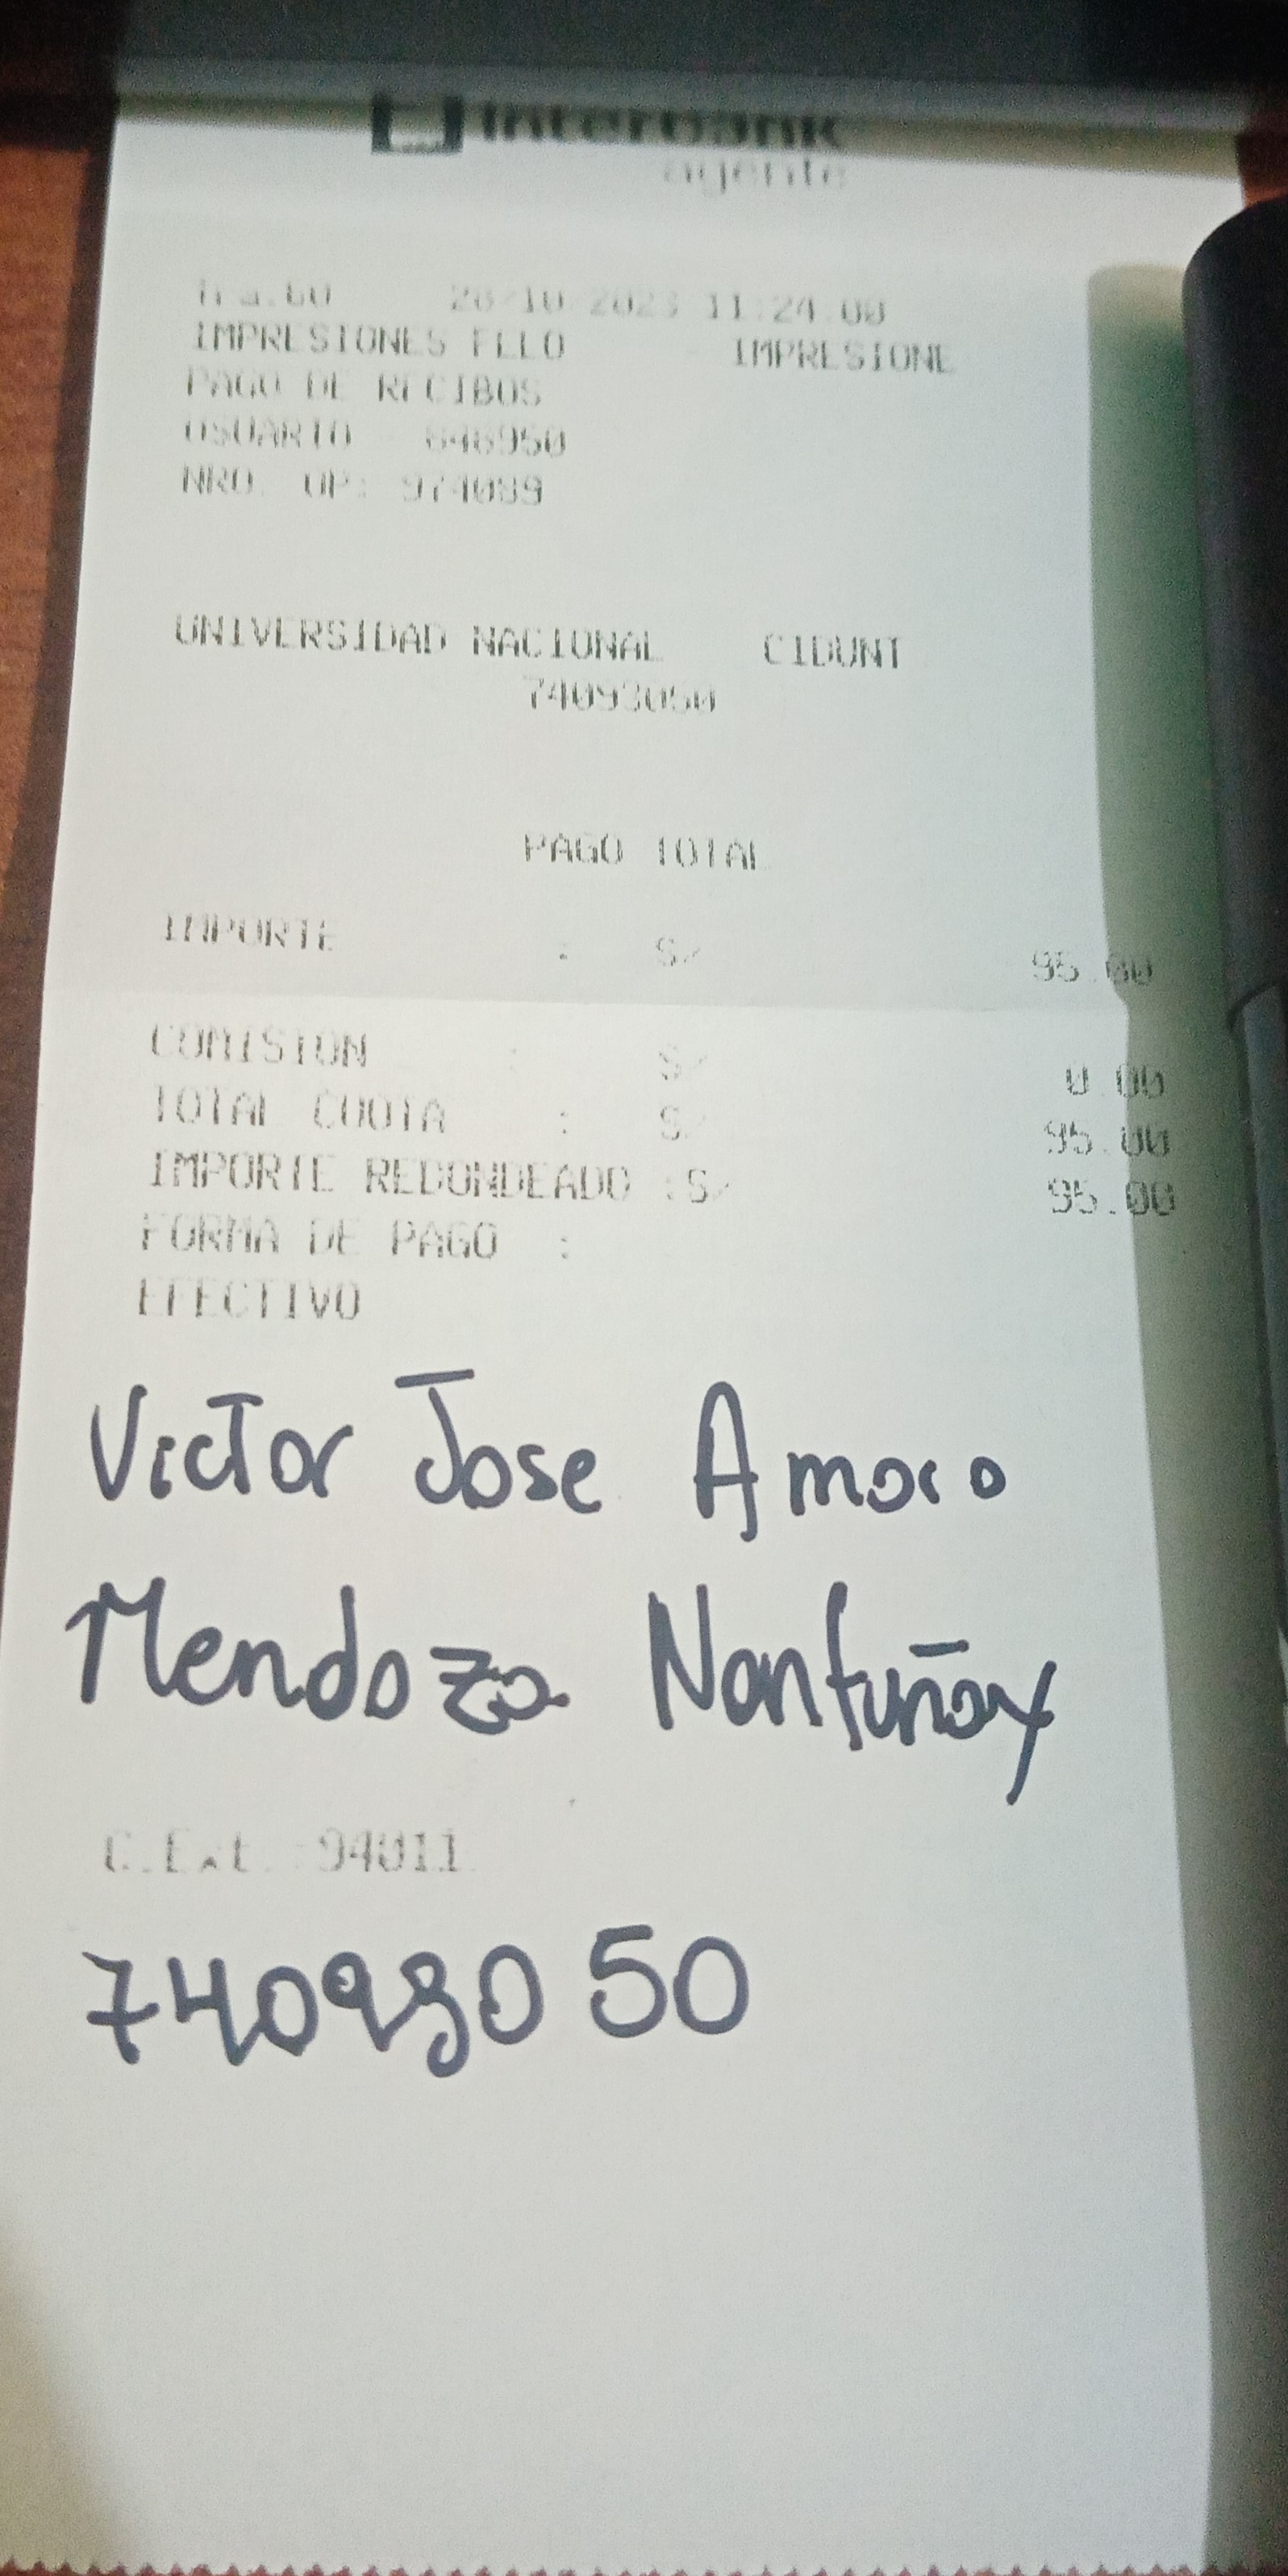 Interbank
agente
11:24:00
IMPRESIONES FLLO IMPRESIONE
PAGO DE RECIBOS
USUARIO 848950
NRO. OP: 974089
UNIVERSIDAD NACIONAL CIDUNT
74093050
PAGO TOTAL
IMPORTE : S/ 95.00
COMISION : S/ 0.00
TOTAL CUOTA : S/ 95.00
IMPORTE REDONDEADO :S/ 95.00
FORMA DE PAGO :
EFECTIVO
Victor Jose Amaro
Mendoza Nanfuñay
C.Ext.:94011
74093050